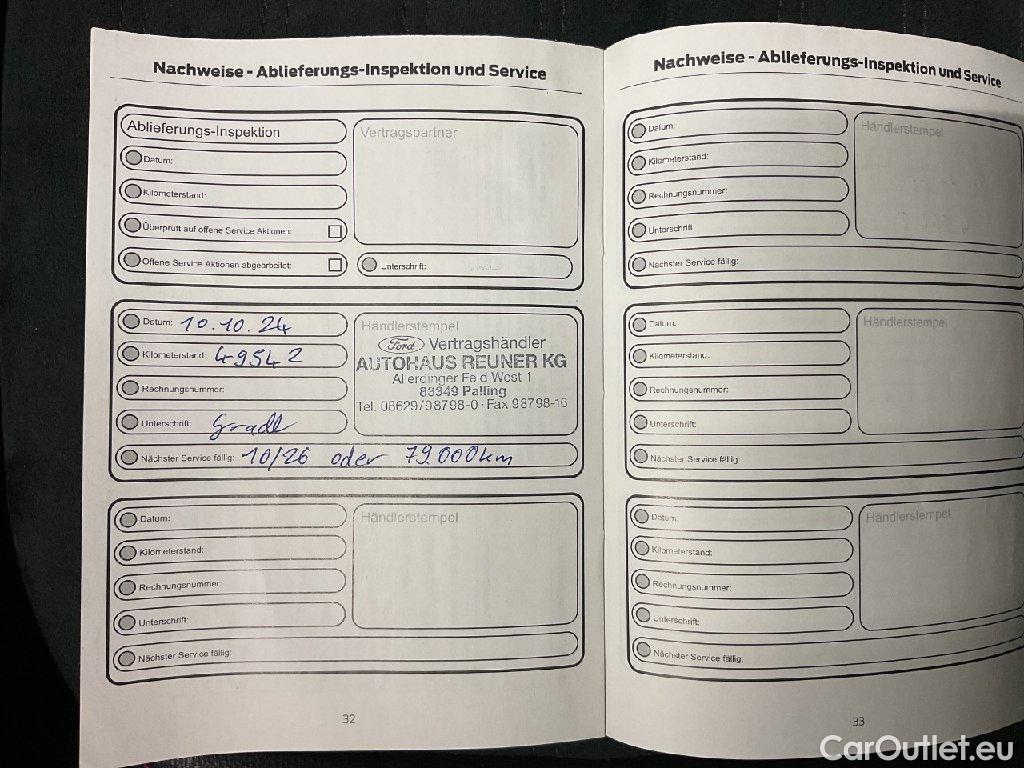 Nachweise - Ablieferungs-Inspektion und Service
Ablieferungs-Inspektion
Vertragspartner
Datum:
Kilometerstand:
Überprüft auf offene Service Aktionen:
Offene Service Aktionen abgearbeitet:
Unterschrift:
Datum: 10.10.24
Händlerstempel
Kilometerstand: 49542
Ford Vertragshändler
AUTOHAUS REUNER KG
Allerdinger Feld West 1
83349 Palling
Tel. 08629/98798-0 · Fax 98798-16
Rechnungsnummer:
Unterschrift: Gradl
Nächster Service fällig: 10/26 oder 79.000km
Datum:
Händlerstempel
Kilometerstand:
Rechnungsnummer:
Unterschrift:
Nächster Service fällig:
32
Nachweise - Ablieferungs-Inspektion und Service
Datum:
Händlerstempel
Kilometerstand:
Rechnungsnummer:
Unterschrift
Nächster Service fällig:
Datum:
Händlerstempel
Kilometerstand:
Rechnungsnummer:
Unterschrift:
Nächster Service fällig
Datum:
Händlerstempel
Kilometerstand:
Rechnungsnummer:
Unterschrift:
Nächster Service fällig:
33
CarOutlet.eu